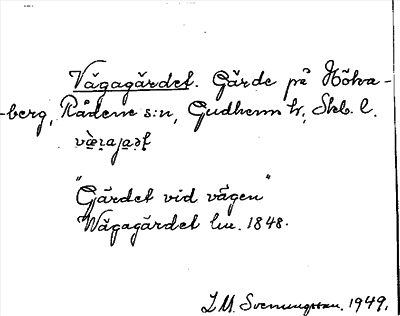 Vägagärdet. Gärde på Höka-
-berg, Rådene s:n, Gudhems h., Skb. l.
"Gärdet vid vägen"
Wägagärdet lm. 1848.
I. M. Svenungsson. 1949.